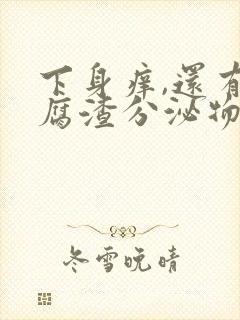 下身痒,還有
腐渣分泌物
冬雪晚晴